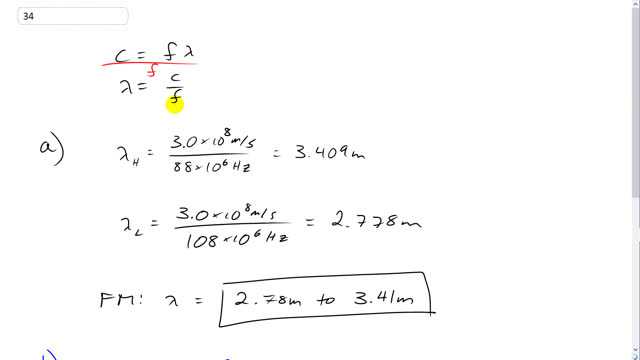 34
c = f λ
f
λ = c/f
a) λ_H = 3.0 × 10^8 m/s / 88 × 10^6 Hz = 3.409 m
λ_L = 3.0 × 10^8 m/s / 108 × 10^6 Hz = 2.778 m
FM: λ = 2.78m to 3.41m